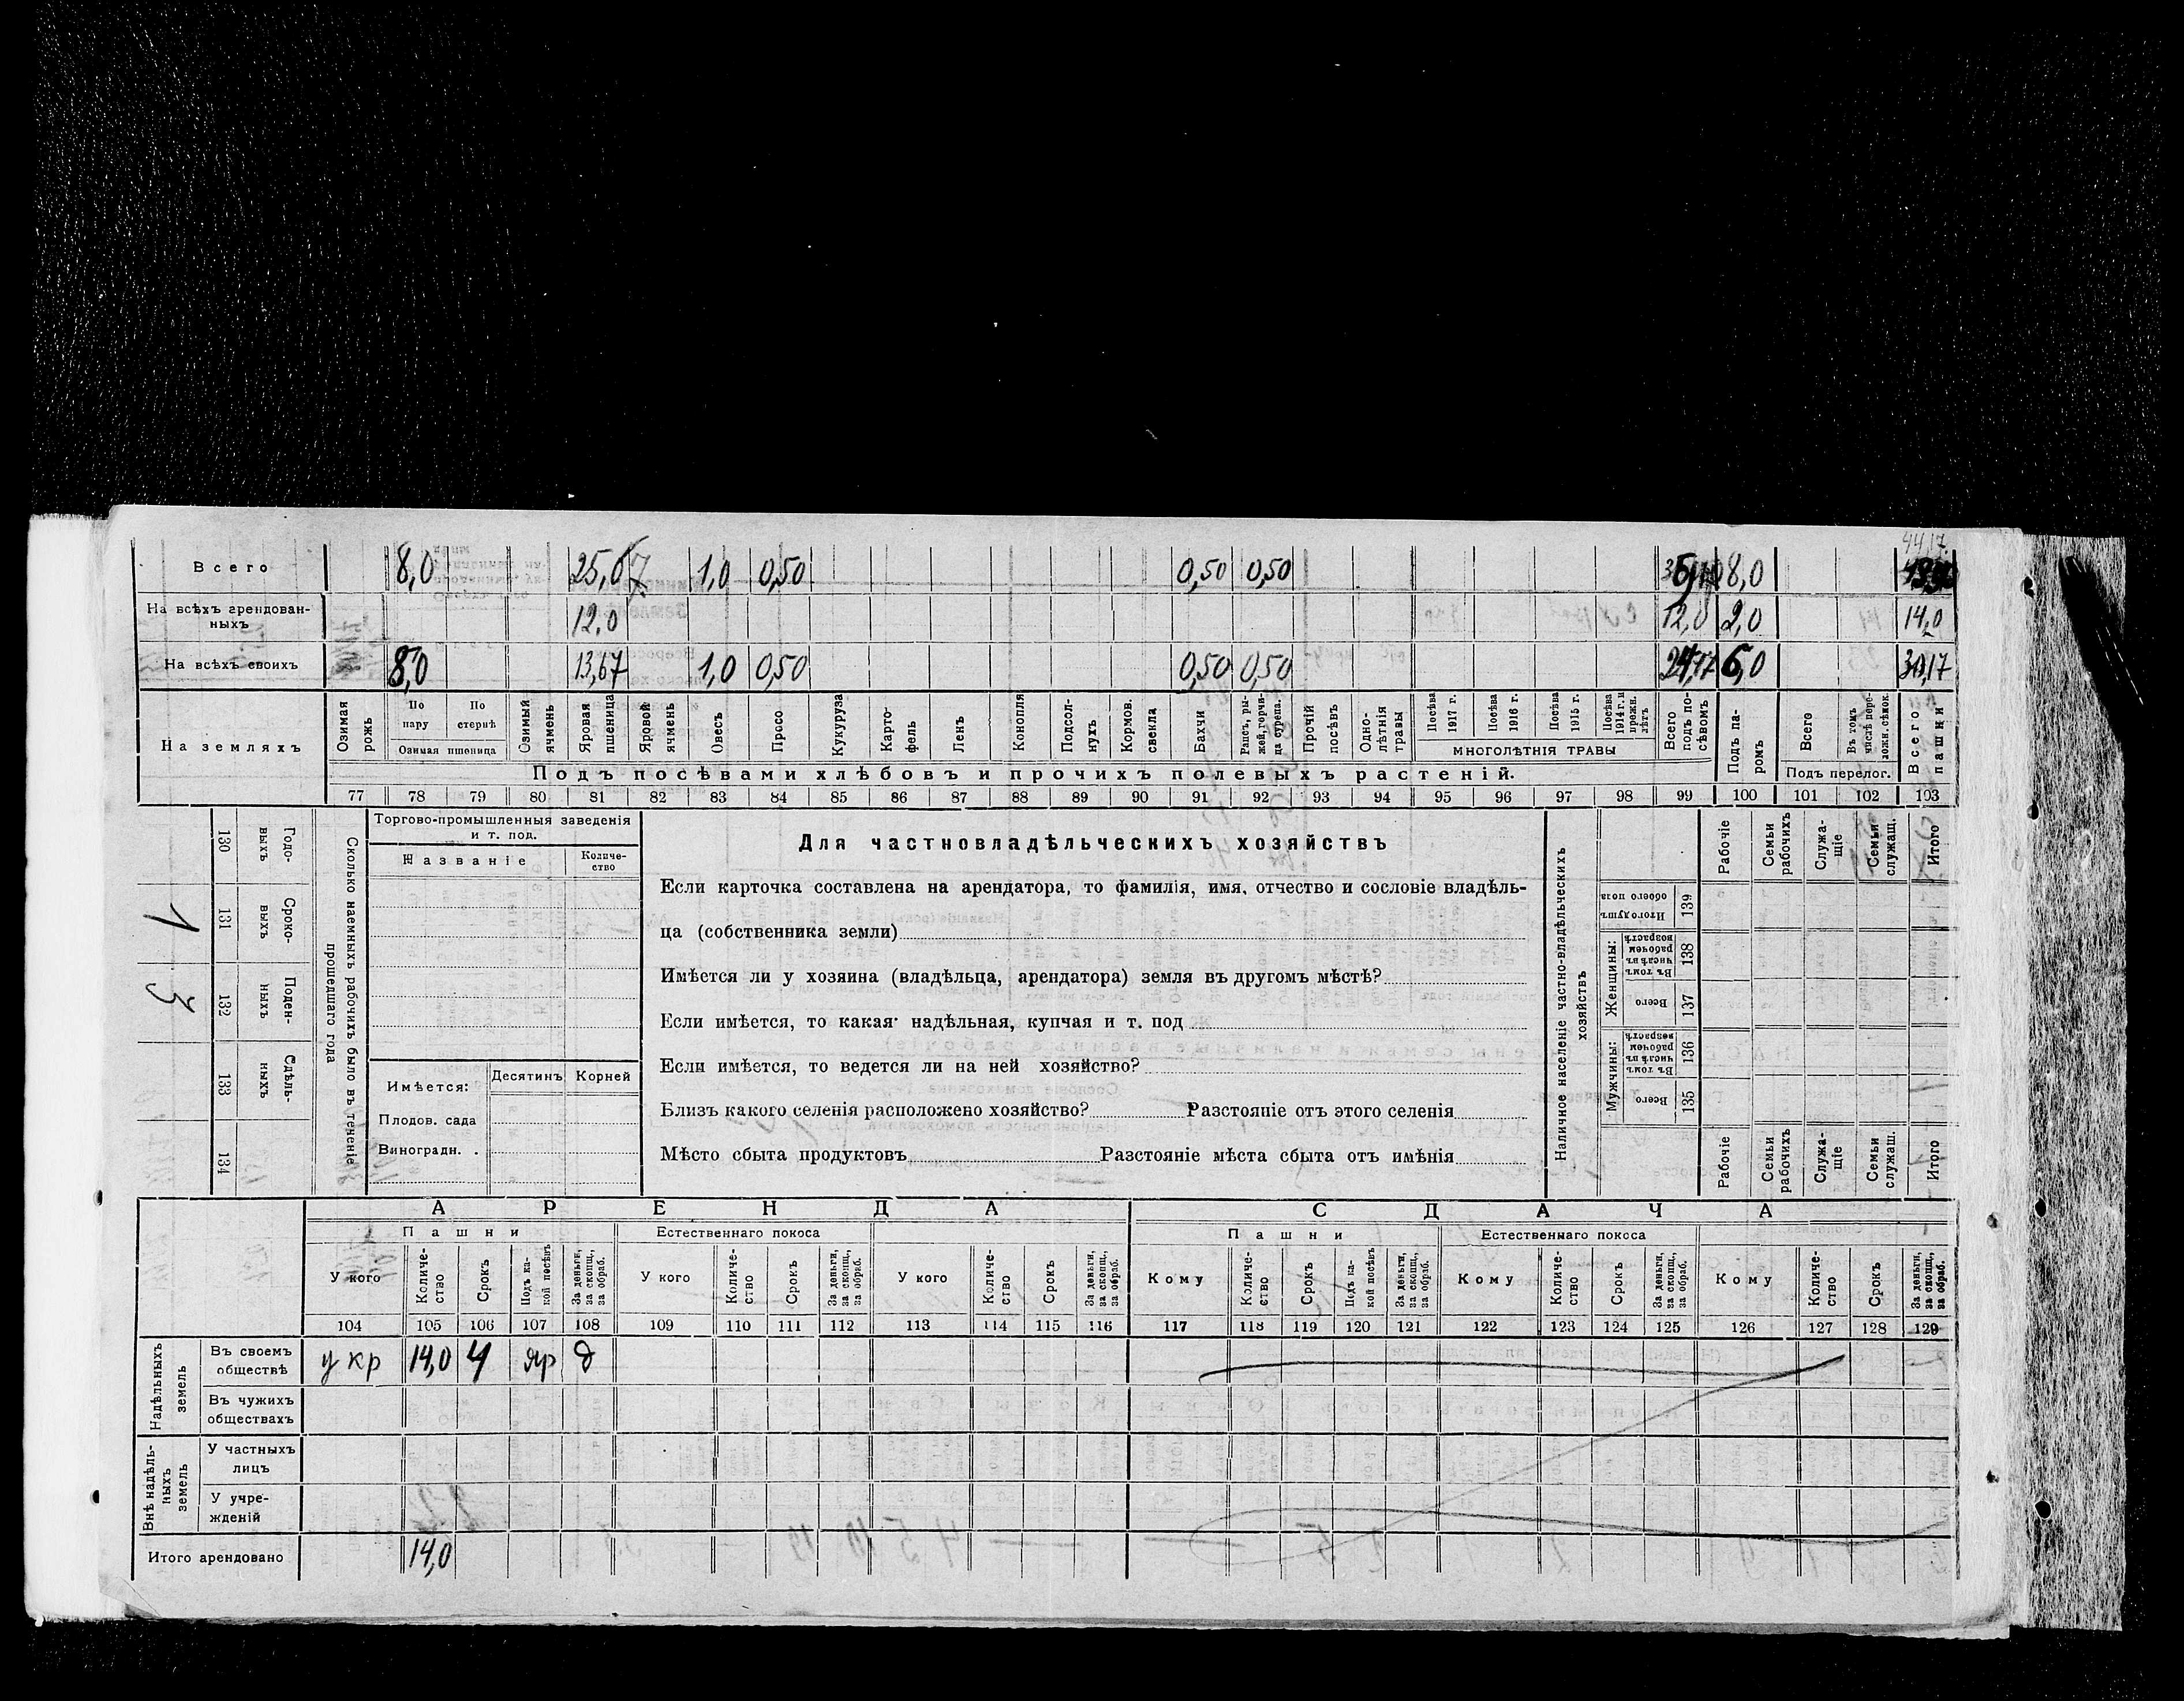 44,17.
Всего 8,0 25,67 1,0 0,50 0,50 0,50 8,0
На всѣхъ арендован-
ныхъ 12,0 12,0 2,0 14,0
На всѣхъ своихъ 8,0 13,67 1,0 0,50 0,50 0,50 24,17 6,0 30,17
На земляхъ
Озимая рожь
По пару
По стернѣ
Озимая пшеница
Озимый ячмень
Яровая пшеница
Яровой ячмень
Овесъ
Просо
Кукуруза
Карто-
фель
Ленъ
Конопля
Подсол-
нухъ
Кормов. свекла
Бахчи
Рапсъ, ры-
жей, горчи-
ца сурепа.
Прочій посѣвъ
Одно-
лѣтнія травы
Посѣва 1917 г.
Посѣва 1916 г.
Посѣва 1915 г.
Посѣва 1914 г. и прежн. лѣтъ
МНОГОЛѢТНІЯ ТРАВЫ
Всего подъ по-
сѣвомъ
Подъ па-
ромъ
Всего
Въ томъ числѣ пере-
ложн. сѣнок.
Подъ перелог.
Всего пашни
Подъ посѣвами хлѣбовъ и прочихъ полевыхъ растеній.
77 78 79 80 81 82 83 84 85 86 87 88 89 90 91 92 93 94 95 96 97 98 99 100 101 102 103
Сколько наемныхъ рабочихъ было въ теченіе
прошедшаго года
Годо-
выхъ
130
Сроко-
выхъ
131
1
Поден-
ныхъ
132
3
Сдѣль-
ныхъ
133
134
Торгово-промышленныя заведенія
и т. под.
Названіе
Количе-
ство
Имѣется: Десятинъ Корней
Плодов. сада
Виноградн. .
Для частновладѣльческихъ хозяйствъ
Если карточка составлена на арендатора, то фамилія, имя, отчество и сословіе владѣль-
ца (собственника земли)
Имѣется ли у хозяина (владѣльца, арендатора) земля въ другомъ мѣстѣ?
Если имѣется, то какая надѣльная, купчая и т. под
Если имѣется, то ведется ли на ней хозяйство?
Близъ какого селенія расположено хозяйство? Разстояніе отъ этого селенія
Мѣсто сбыта продуктовъ Разстояніе мѣста сбыта отъ имѣнія
Наличное населеніе частно-владѣльческихъ
хозяйствъ
Рабочіе
Семьи рабочихъ
Служа-
щіе
Семьи служащ.
Итого
Итого душъ обоего пола
139
Женщины:
Въ томъ числѣ въ рабочемъ возрастѣ
138
Всего
137
Мужчины:
Въ томъ числѣ въ рабочемъ возрастѣ
136
Всего
135
Рабочіе
Семьи рабочихъ
Служа-
щіе
Семьи служащ.
Итого
АРЕНДА СДАЧА
Пашни Естественнаго покоса Пашни Естественнаго покоса
У кого
Количе-
ство
Срокъ
Подъ ка-
кой посѣвъ
За деньги, за скопщ., за обраб.
У кого
Количе-
ство
Срокъ
За деньги, за скопщ., за обраб.
У кого
Количе-
ство
Срокъ
За деньги, за скопщ., за обраб.
Кому
Количе-
ство
Срокъ
Подъ ка-
кой посѣвъ
За деньги, за скопщ., за обраб.
Кому
Количе-
ство
Срокъ
За деньги, за скопщ., за обраб.
Кому
Количе-
ство
Срокъ
За деньги, за скопщ., за обраб.
104 105 106 107 108 109 110 111 112 113 114 115 116 117 118 119 120 121 122 123 124 125 126 127 128 129
Надѣльныхъ земель
Въ своемъ
обществѣ у кр 14,0 4 яр д
Въ чужихъ
обществахъ
Внѣ надѣль-
ныхъ земель
У частныхъ
лицъ
У учре-
жденій
Итого арендовано 14,0